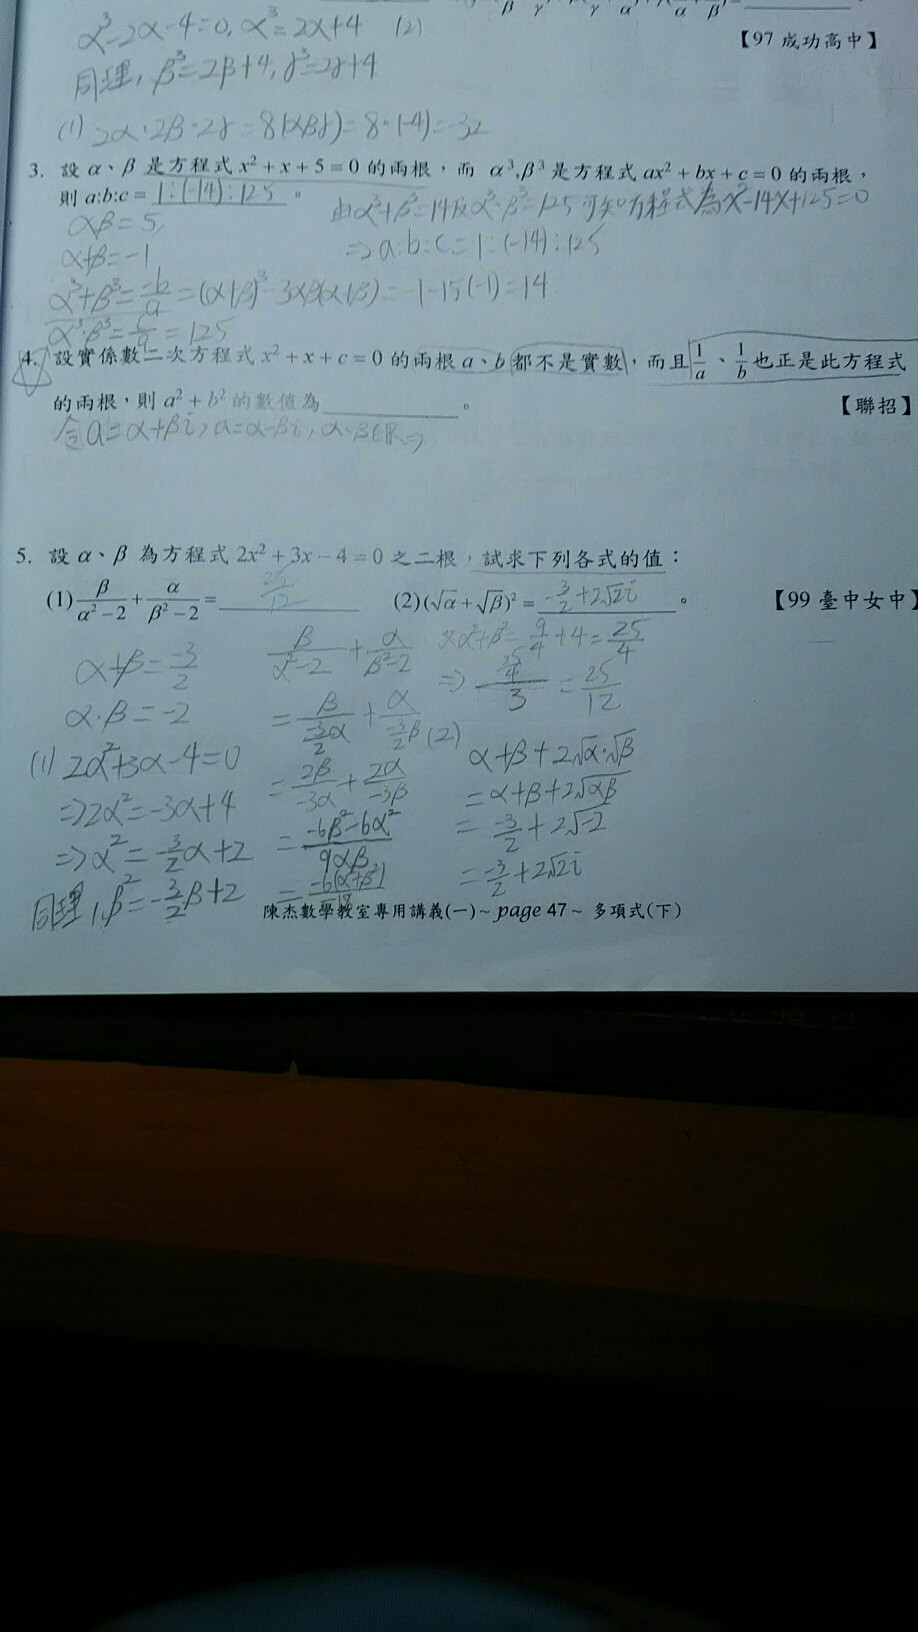 α³-2α-4=0, α³=2α+4 (2)
【97 成功高中】
同理, β³=2β+4, γ³=2γ+4
(1) 2α·2β·2γ=8(αβγ)=8·(-4)=-32
3. 設 α、β 是方程式 x²+x+5=0 的兩根,而 α³,β³ 是方程式 ax²+bx+c=0 的兩根,
則 a:b:c= 1:(-14):125 。
由α³+β³=14及α³·β³=125可知方程式為x²-14x+125=0
αβ=5,
⇒a:b:c=1:(-14):125
α+β=-1
α³+β³=-b/a=(α+β)³-3αβ(α+β)=-1-15(-1)=14
α³·β³=c/a=125
4. 設實係數二次方程式 x²+x+c=0 的兩根 a、b 都不是實數,而且 1/a、1/b 也正是此方程式
的兩根,則 a²+b² 的數值為________。 【聯招】
令a=α+βi, a=α-βi, α、β∈R⇒
5. 設 α、β 為方程式 2x²+3x-4=0 之二根,試求下列各式的值:
(1) β/(α²-2)+α/(β²-2)= 25/12 (2)(√α+√β)²= -3/2+2√2i 。 【99 臺中女中】
α+β=-3/2
α·β=-2
(1) 2α²+3α-4=0
⇒2α²=-3α+4
⇒α²=-3/2α+2
同理, β²=-3/2β+2
β/(α²-2)+α/(β²-2)
=β/(-3/2α)+α/(-3/2β)
=2β/-3α+2α/-3β
=(-6β²-6α²)/9αβ
=-6(α²+β²)/-18
又α²+β²=9/4+4=25/4
⇒(25/4)/3=25/12
(2)
α+β+2√α·√β
=α+β+2√αβ
=-3/2+2√-2
=-3/2+2√2i
陳杰數學教室專用講義(一)~page 47~ 多項式(下)